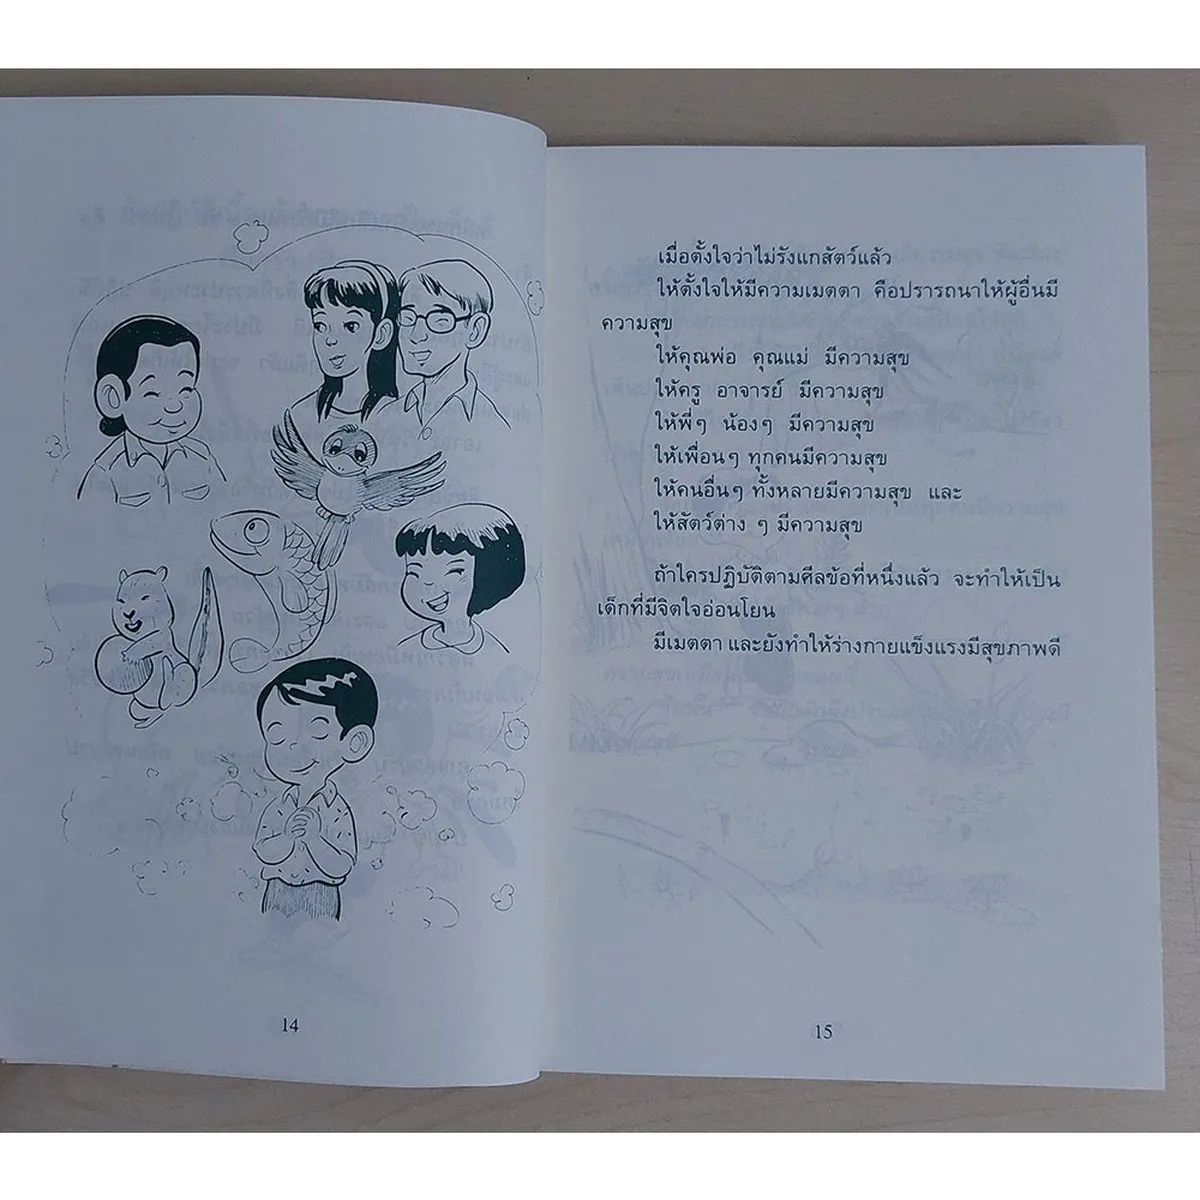 14
เมื่อตั้งใจว่าไม่รังแกสัตว์แล้ว
ให้ตั้งใจให้มีความเมตตา คือปรารถนาให้ผู้อื่นมี
ความสุข
ให้คุณพ่อ คุณแม่ มีความสุข
ให้ครู อาจารย์ มีความสุข
ให้พี่ๆ น้องๆ มีความสุข
ให้เพื่อนๆ ทุกคนมีความสุข
ให้คนอื่นๆ ทั้งหลายมีความสุข และ
ให้สัตว์ต่าง ๆ มีความสุข
ถ้าใครปฏิบัติตามศีลข้อที่หนึ่งแล้ว จะทำให้เป็น
เด็กที่มีจิตใจอ่อนโยน
มีเมตตา และยังทำให้ร่างกายแข็งแรงมีสุขภาพดี
15